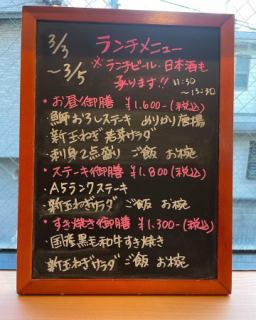 3/3
～3/5
ランチメニュー
※ランチビール・日本酒も
承ります!! 11:30
～13:30
・お昼御膳 ¥1.600-(税込)
鰤おろしステキ めひかり唐揚
新玉ねぎ若芽サラダ
刺身2点盛り ご飯 お椀
・ステーキ御膳 ¥1.800-(税込)
・A5ランクステーキ
新玉ねぎサラダ ご飯 お椀
・すき焼き御膳 ¥1.300-(税込)
・国産黒毛和牛すき焼き
新玉ねぎサラダ ご飯 お椀